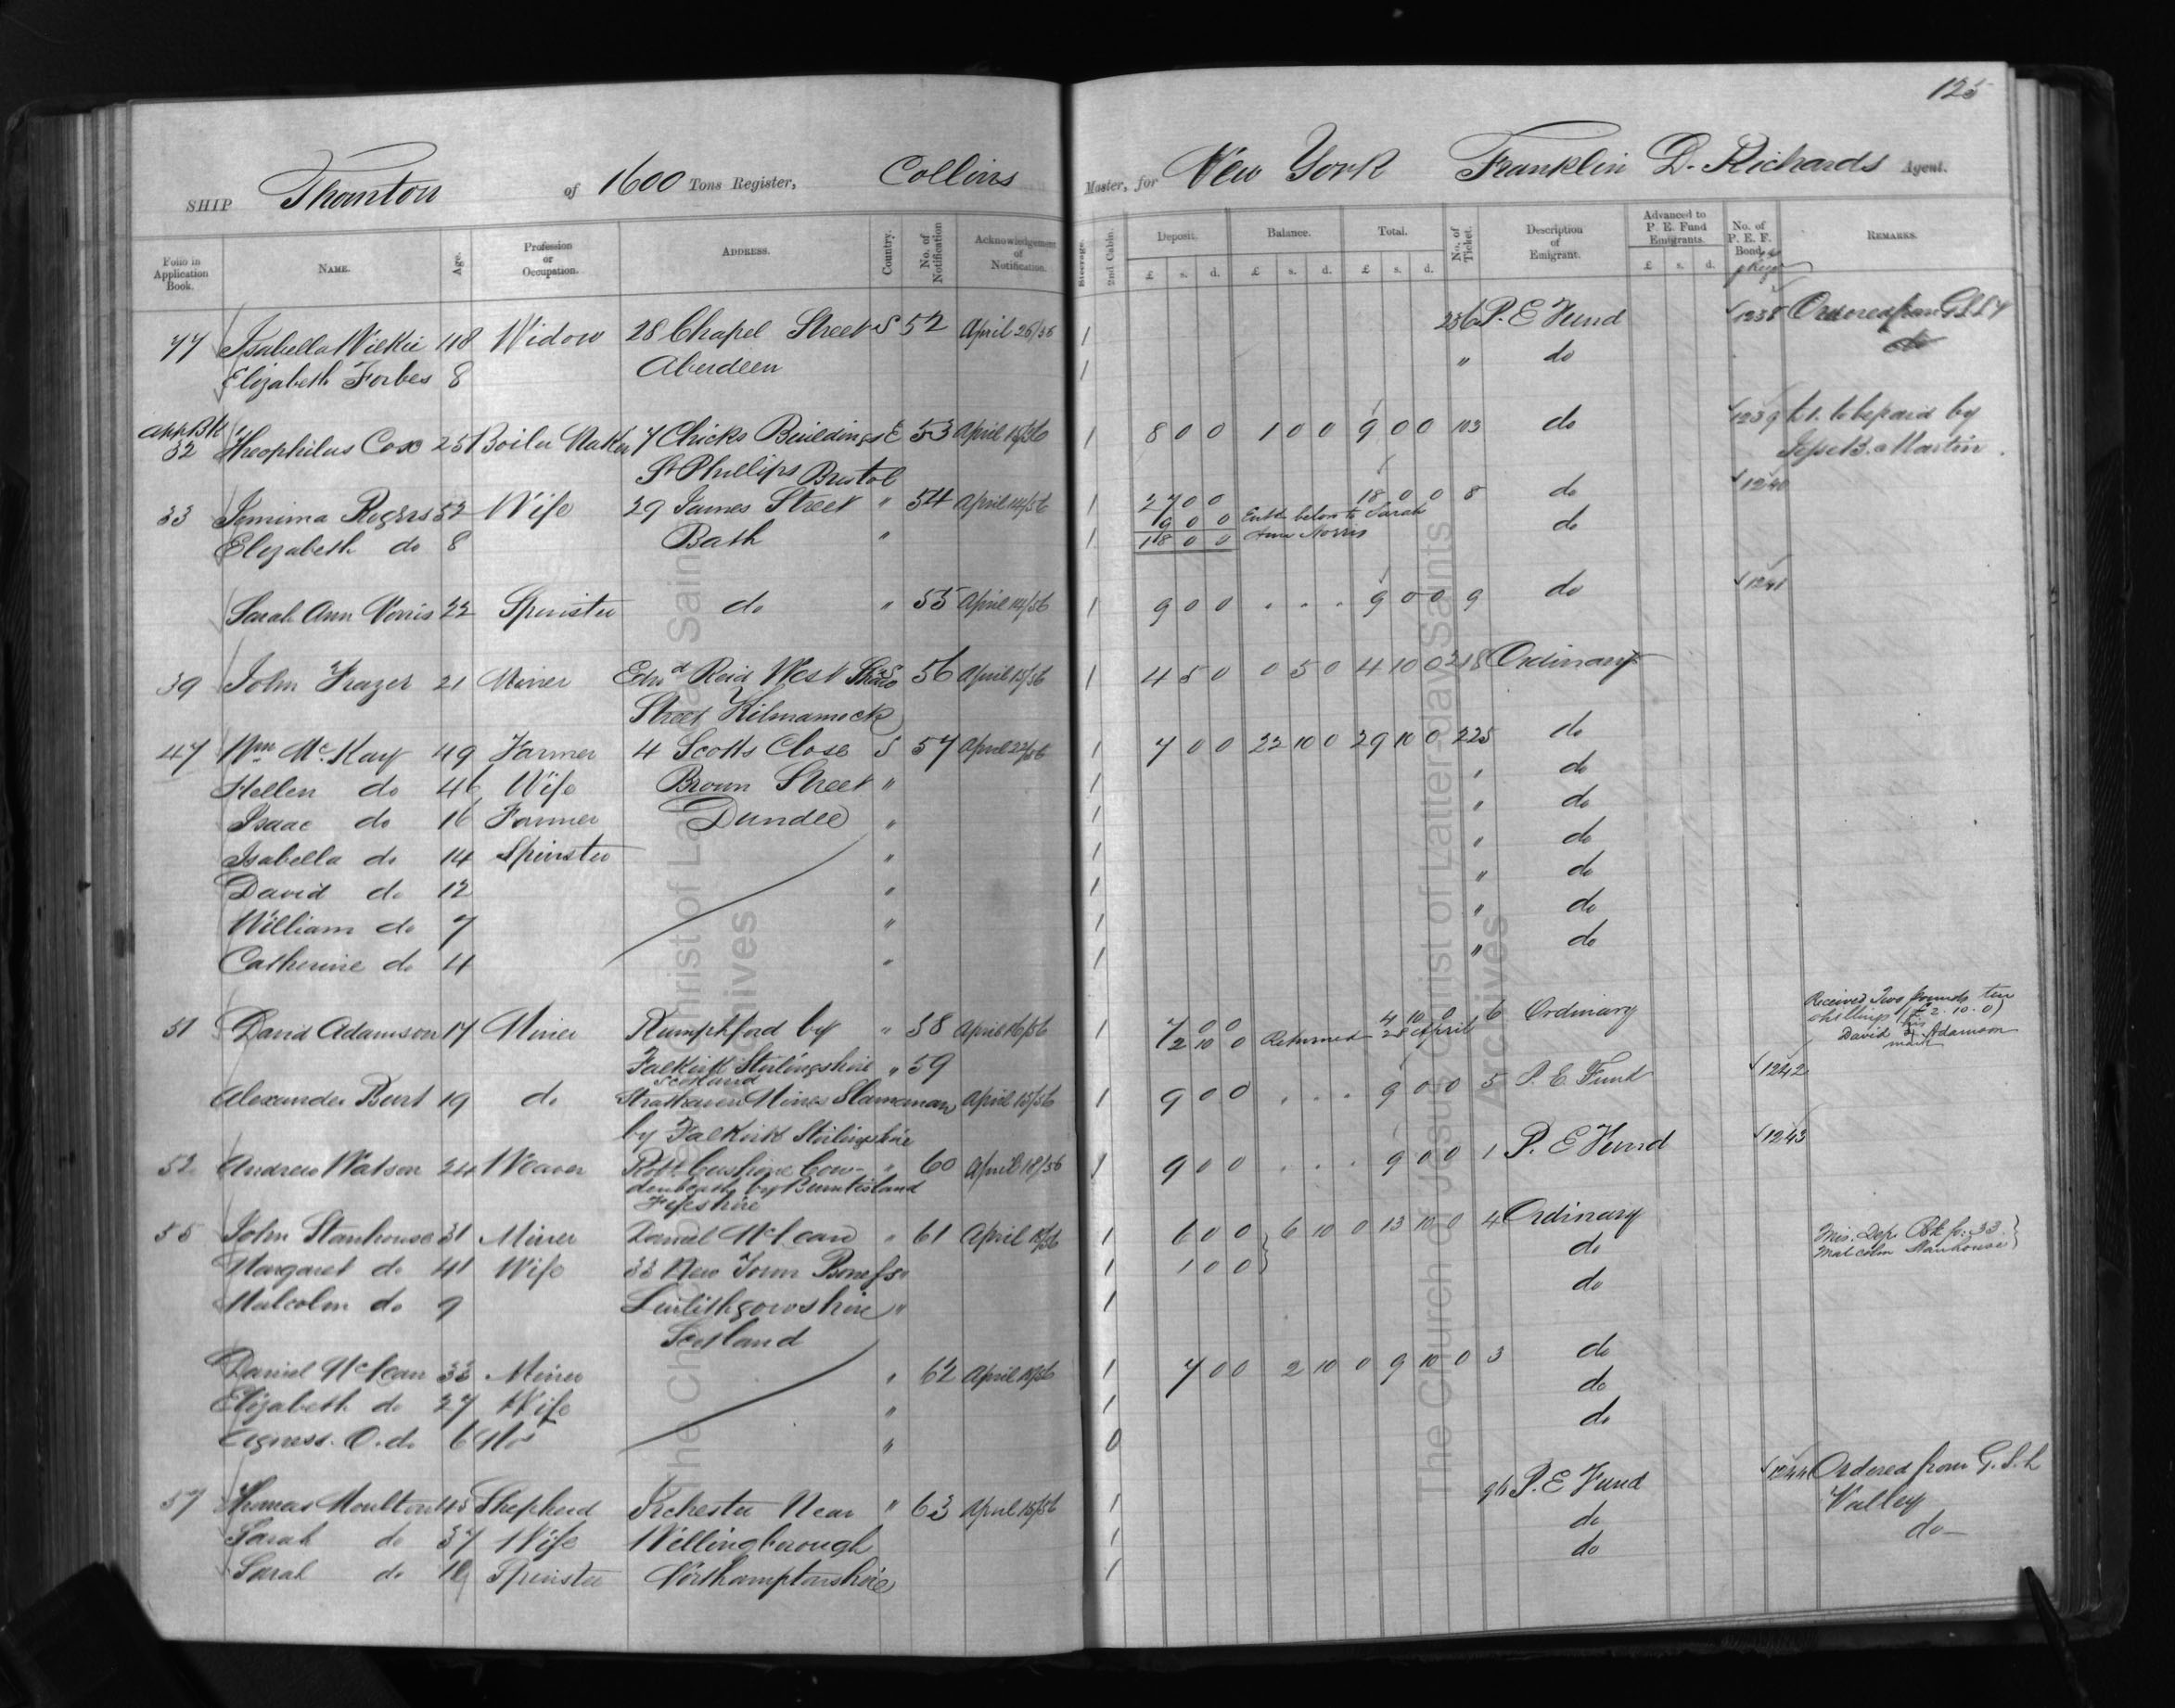 125
SHIP Thornton of 1600 Tons Register, Collins Master, for New York Franklin D. Richards Agent.
Folio in Application Book. NAME. Age. Profession or Occupation. ADDRESS. Country. No. of Notification Acknowledgement of Notification. Steerage. 2nd Cabin. Deposit. £ s. d. Balance. £ s. d. Total. £ s. d. No. of Ticket. Description of Emigrant. Advanced to P. E. Fund Emigrants. £ s. d. No. of P. E. F. Bond. REMARKS.
77 Isabella Wilkie 48 Widow 28 Chapel Street S 52 April 26/56 1 236 P. E Fund 1238 Ordered from
Elizabeth Forbes 8 Aberdeen 1 " do do
App Bk 32 Theophilus Cox 25 Boiler Maker 7 Chicks Buildings E 53 April 1 8 0 0 1 0 0 9 0 0 103 do 1239 £1. to be paid by
St Phillips Bristol Jesse B. Martin.
33 Jemima Rogers 52 Wife 29 James Street " 54 April 14/56 1 27 0 0 18 0 0 8 do 1240
9 0 0 belon to Sarah
Elizabeth do 8 Bath " 1 18 0 0 Ann Norris do
Sarah Ann Norris 22 Spinster do " 55 April 14/56 1 9 0 0 . . . 9 0 0 9 do 1241
39 John Frazer 21 Miner Edwd Reid West Shaw S 56 April 15/56 1 4 5 0 0 5 0 4 10 0 218 Ordinary
Street Kilmarnock
47 Wm McKay 49 Farmer 4 Scotts Close S 57 April 22/56 1 7 0 0 22 10 0 29 10 0 225 do
Hellen do 46 Wife Brown Street " 1 " do
Isaac do 16 Farmer Dundee " 1 " do
Isabella do 14 Spinster " 1 " do
David do 12 " 1 " do
William do 7 " 1 " do
Catherine do 4 " 1 " do
51 David Adamson 17 Miner Rumphford by " 58 April 16/56 1 7 0 0 4 10 0 6 Ordinary Received Two pounds ten
2 10 0 Returned 28 April shillings (£2.10.0)
David his mark Adamson
Falkirk Stirlingshire " 59
Scotland
Alexander Burt 19 do Strathaven Mines Slamanan April 15/56 1 9 0 0 . . . 9 0 0 5 P. E. Fund 1242
by Falkirk Stirlingshire
52 Andrew Watson 24 Weaver Robt Cushion Cow- " 60 April 18/56 1 9 0 0 . . . 9 0 0 1 P. E Fund 1243
denbeath by Burntisland
Fifeshire
55 John Stanhouse 31 Miner Daniel McLean " 61 April 1 6 0 0 6 10 0 13 10 0 4 Ordinary Mis. Dep. Bk fo: 33
Margaret do 41 Wife 33 New Town Boness " 1 1 0 0 do Malcolm Stanhouse
Malcolm do 9 Linlithgowshire " 1 do
Scotland
Daniel McLean 33 Miner " 62 April 1 7 0 0 2 10 0 9 10 0 3 do
Elizabeth do 27 Wife " 1 do
Agness. O. do 6 Mos " 0 do
57 Thomas Moulton 45 Shepherd Irchester Near " 63 April 15/56 1 96 P. E Fund 1244 Ordered from G. S. L
Valley
Sarah do 37 Wife Wellingborough 1 do do
Sarah do 18 Spinster Northamptonshire 1 do
The Church of Jesus Christ of Latter-day Saints
Archives
The Church of Jesus Christ of Latter-day Saints
Archives